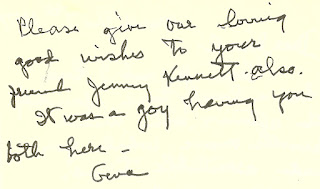 Please give our loving
good wishes to your
friend Jenny Kennett - also.
It was a joy having you
both here -
Geva